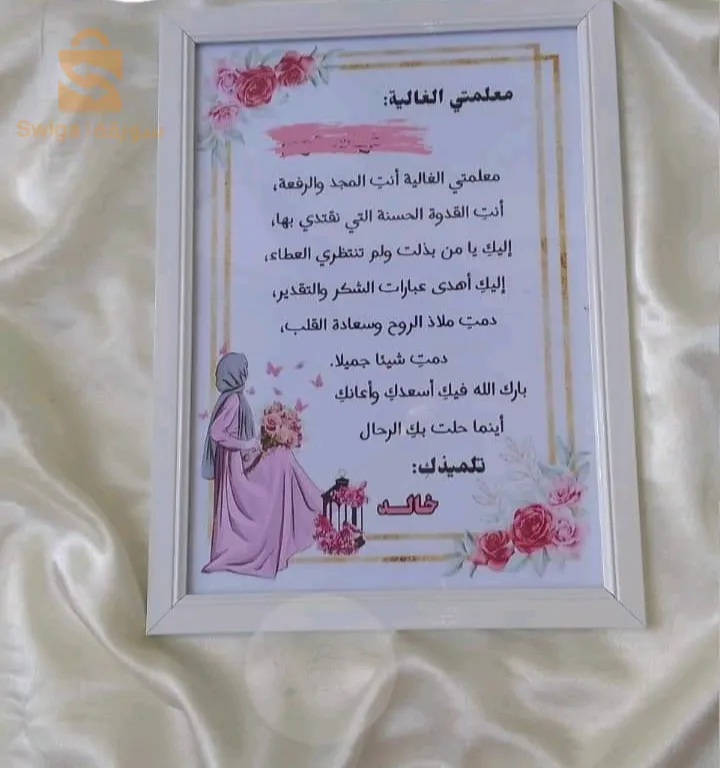 Swiga سويقة
معلمتي الغالية:
معلمتي الغالية أنتِ المجد والرفعة،
أنتِ القدوة الحسنة التي نقتدي بها،
إليكِ يا من بذلت ولم تنتظري العطاء،
إليكِ أهدى عبارات الشكر والتقدير،
دمتِ ملاذ الروح وسعادة القلب،
دمتِ شيئا جميلا.
بارك الله فيكِ أسعدكِ وأعانكِ
أينما حلت بكِ الرحال
تلميذكِ:
خالد